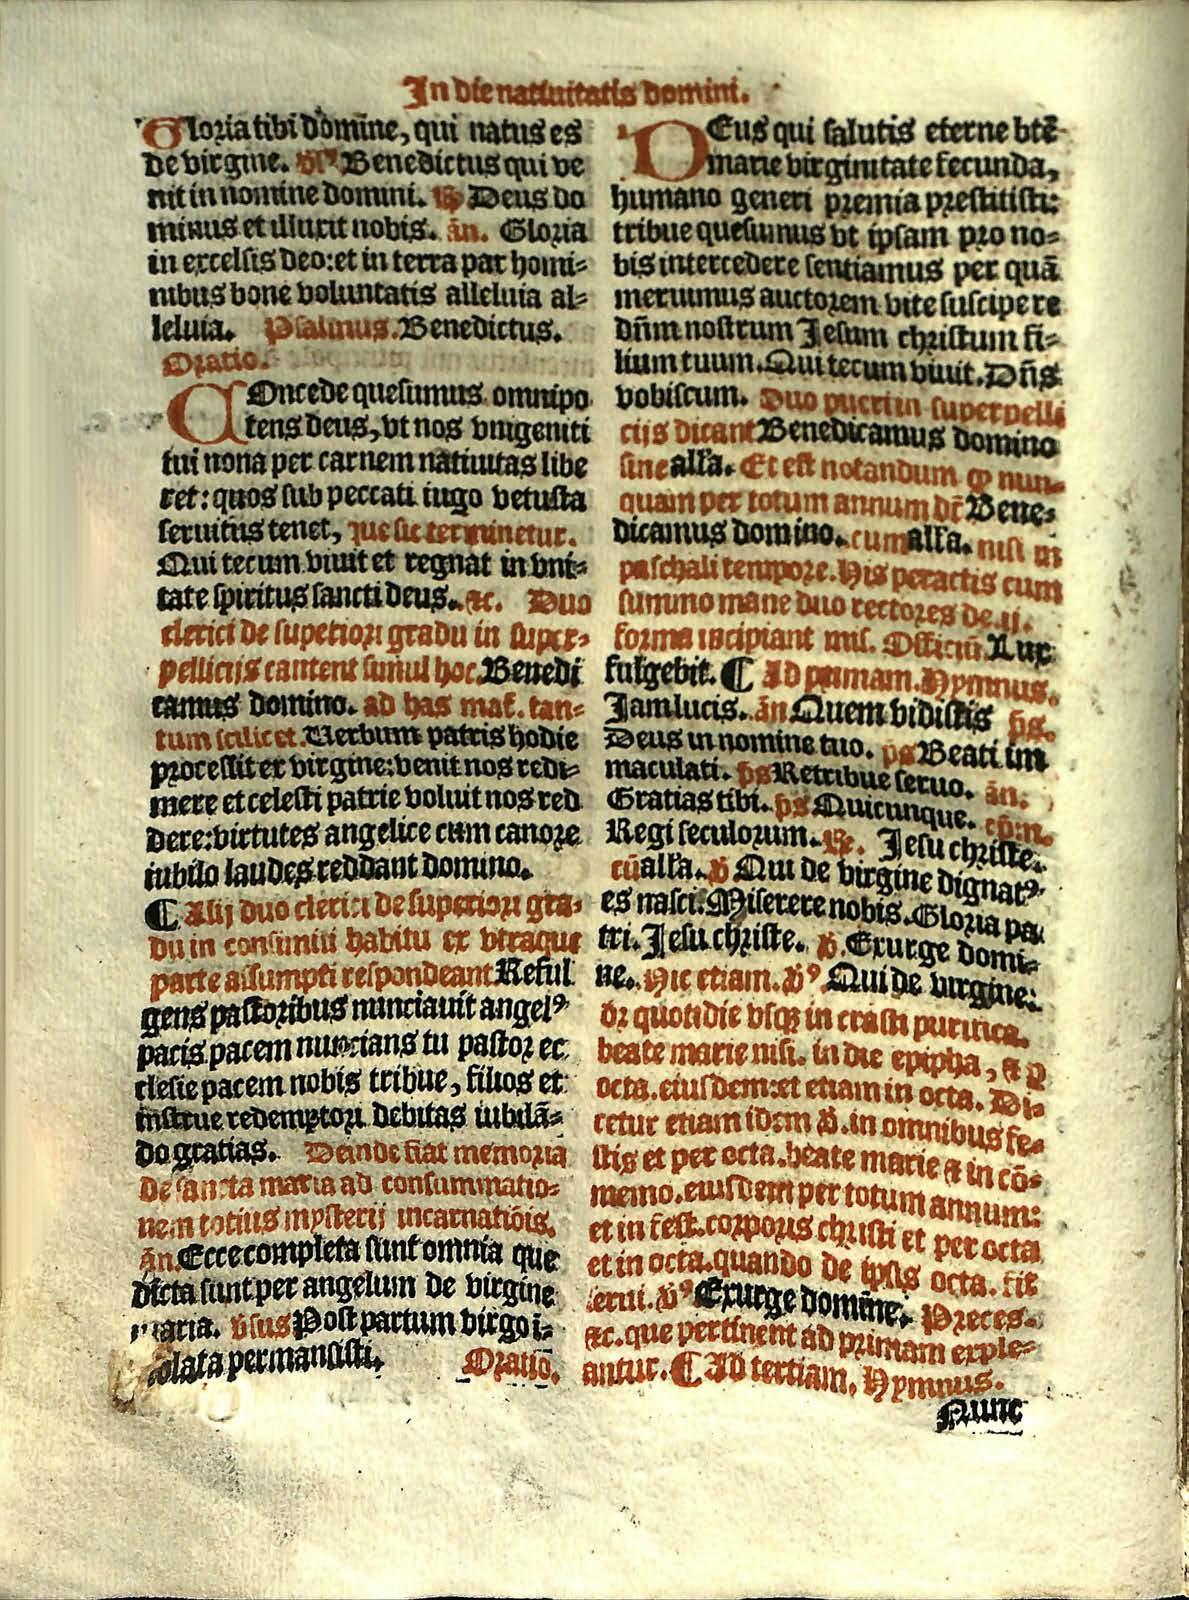 In die natiuitatis domini.
Gloria tibi domine, qui natus es
de virgine. v̄s Benedictus qui ve
nit in nomine domini. ℞ Deus do
minus et illuxit nobis. an̄. Gloria
in excelsis deo: et in terra pax homi⸗
nibus bone voluntatis alleluia al⸗
leluia. Psalmus. Benedictus.
Oratio.
COncede quesumus omnipo
tens deus, vt nos vnigeniti
tui noua per carnem natiuitas libe
ret: quos sub peccati iugo vetusta
seruitus tenet, que sic terminetur.
Qui tecum viuit et regnat in vni⸗
tate spiritus sancti deus. ⁊c. Duo
clerici de superiori gradu in super⸗
pelliciis cantent simul hoc. Benedi
camus domino. ad has mat̄. tan⸗
tum scilicet. Verbum patris hodie
processit ex virgine: venit nos redi⸗
mere et celesti patrie voluit nos red
dere: virtutes angelice cum canore
iubilo laudes reddant domino.
¶ Alij duo clerici de superiori gra⸗
du in consimili habitu ex vtraque
parte assumpti respondeant Reful
gens pastoribus nunciauit angelꝰ
pacis pacem nuncians tu pastor ec
clesie pacem nobis tribue, filios et
instrue redemptori debitas iubilā⸗
do gratias. Deinde fiat memoria
de sancta maria ad consummatio⸗
nem totius mysterij incarnatiōis.
an̄. Ecce completa sunt omnia que
dicta sunt per angelum de virgine
maria. v̄sus Post partum virgo i⸗
olata permansisti. Oratio.
DEus qui salutis eterne btē
marie virginitate fecunda,
humano generi premia prestitisti:
tribue quesumus vt ipsam pro no⸗
bis intercedere sentiamus per quā
meruimus auctorem vite suscipere
dn̄m nostrum Jesum christum fi⸗
lium tuum. Qui tecum viuit. Dn̄s
vobiscum. Duo pueri in superpelli
ciis dicant Benedicamus domino
sine alła. Et est notandum ꝙ nun⸗
quam per totum annum dr̄ Bene⸗
dicamus domino. cum alła. nisi in
paschali tempore. His peractis cum
summo mane duo rectores de .ij.
forma incipiant mis. Officiū. Lux
fulgebit. ¶ Ad primam. Hymnus.
Jam lucis. an̄ Quem vidistis p̄s.
Deus in nomine tuo. p̄s Beati im
maculati. p̄s Retribue seruo. an̄.
Gratias tibi. p̄s Quicunque.
Regi seculorum. ℞. Jesu christe.
cū alła. ℣ Qui de virgine dignatꝰ
es nasci. Miserere nobis. Gloria pa
tri. Jesu christe. ℣. Exurge domi⸗
ne. Hic etiam. v̄ꝰ Qui de virgine:
dr̄ quotidie vsqꝫ in crasti purifica.
beate marie nisi. in die epipha, ⁊ ꝑ
octa. eiusdem: et etiam in octa. Di⸗
cetur etiam idem ℣. in omnibus fe⸗
stis et per octa. beate marie ⁊ in cō⸗
memo. eiusdem per totum annum:
et in fest. corporis christi et per octa
et in octa. quando de ipsis octa. fit
serui. v̄ꝰ Exurge domine. Preces.
⁊c. que pertinent ad primam exple⸗
antur. ¶ Ad tertiam. Hymnus.
Nunc